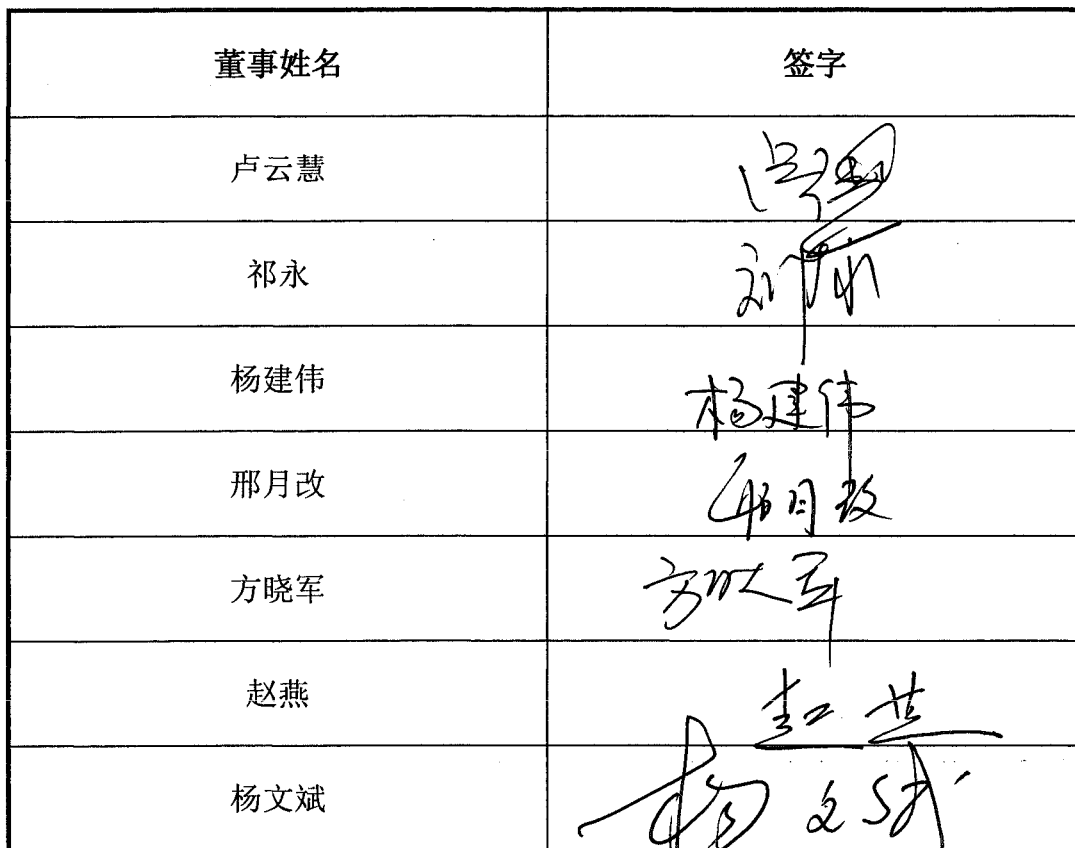 董事姓名 签字
卢云慧
祁永
杨建伟 杨建伟
邢月改 邢月改
方晓军 方晓军
赵燕 赵燕
杨文斌 杨文斌